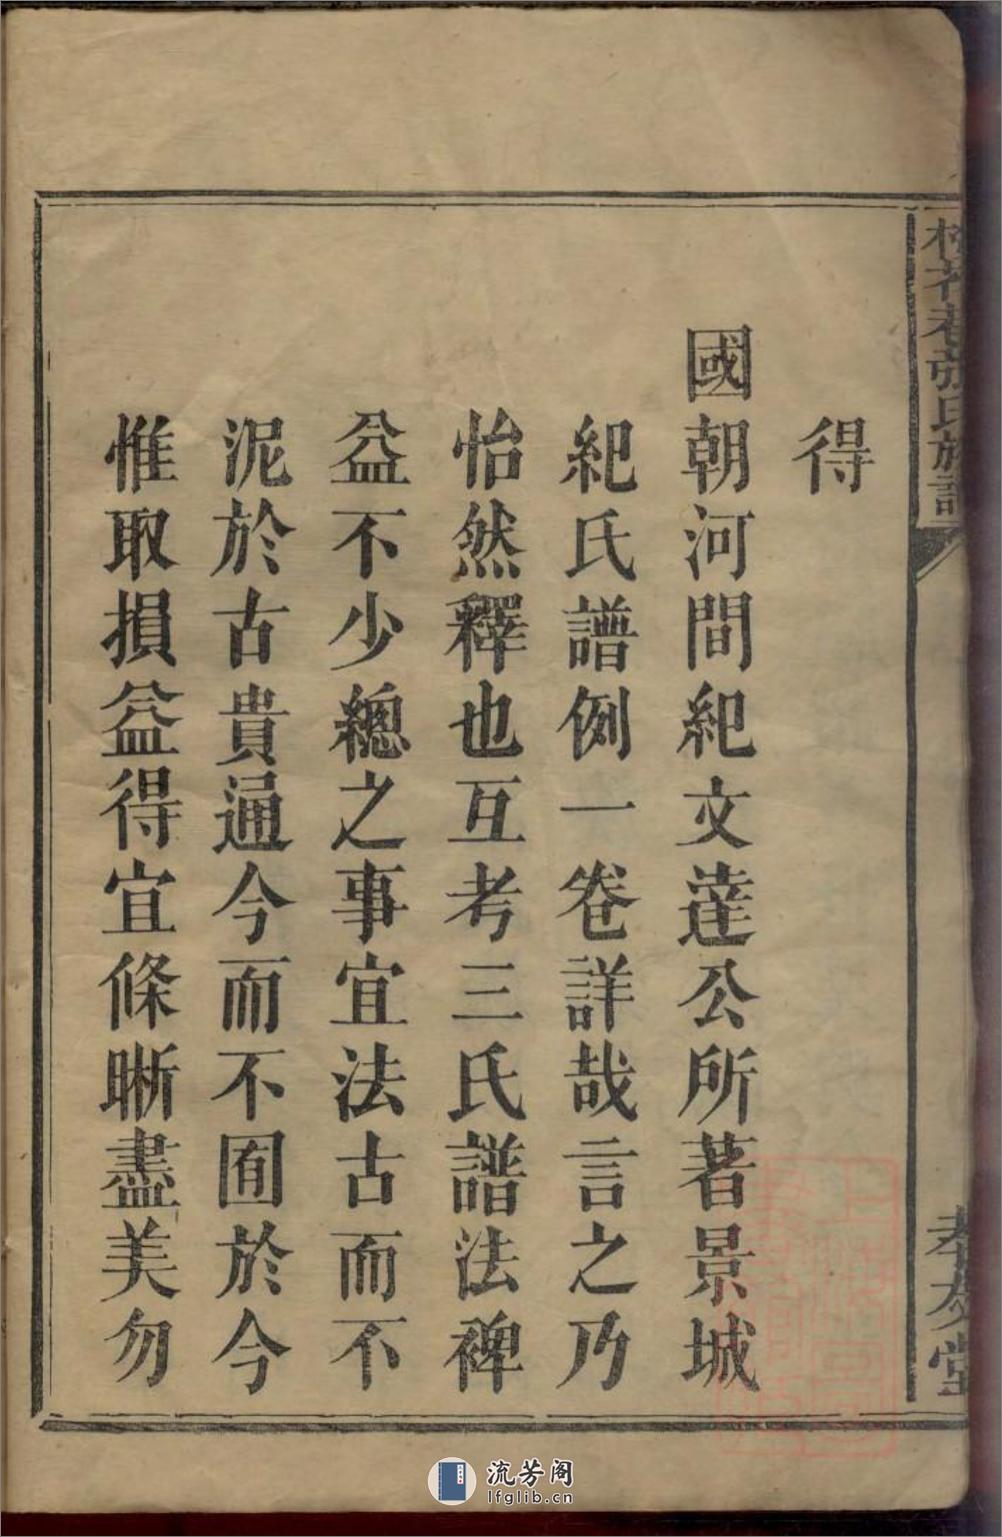 得
國朝河間紀文達公所著景城
紀氏譜例一卷詳哉言之乃
怡然釋也互考三氏譜法裨
益不少總之事宜法古而不
泥於古貴通今而不囿於今
惟取損益得宜條晰盡美勿
張氏族譜
孝友堂
流芳阁
lfglib.cn